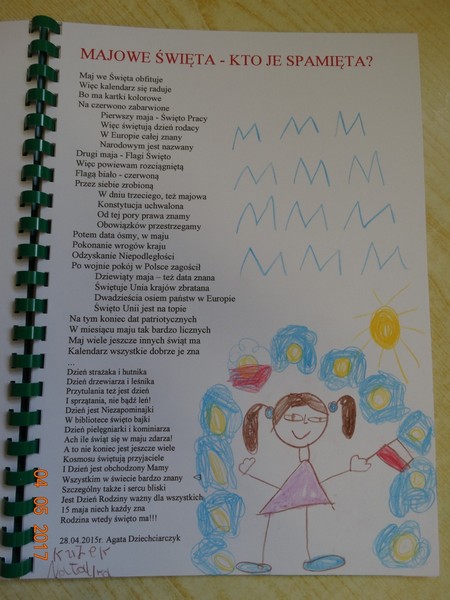 MAJOWE ŚWIĘTA - KTO JE SPAMIĘTA?
Maj we Święta obfituje
Więc kalendarz się raduje
Bo ma kartki kolorowe
Na czerwono zabarwione
Pierwszy maja - Święto Pracy
Więc świętują dzień rodacy
W Europie całej znany
Narodowym jest nazwany
Drugi maja - Flagi Święto
Więc powiewam rozciągniętą
Flagą biało - czerwoną
Przez siebie zrobioną
W dniu trzeciego, też majowa
Konstytucja uchwalona
Od tej pory prawa znamy
Obowiązków przestrzegamy
Potem data ósmy, w maju
Pokonanie wrogów kraju
Odzyskanie Niepodległości
Po wojnie pokój w Polsce zagościł
Dziewiąty maja – też data znana
Świętuje Unia krajów zbratana
Dwadzieścia osiem państw w Europie
Święto Unii jest na topie
Na tym koniec dat patriotycznych
W miesiącu maju tak bardzo licznych
Maj wiele jeszcze innych świąt ma
Kalendarz wszystkie dobrze je zna
...
Dzień strażaka i hutnika
Dzień drzewiarza i leśnika
Przytulania też jest dzień
I sprzątania, nie bądź leń!
Dzień jest Niezapominajki
W bibliotece święto bajki
Dzień pielęgniarki i kominiarza
Ach ile świąt się w maju zdarza!
A to nie koniec jest jeszcze wiele
Kosmosu świętują przyjaciele
I Dzień jest obchodzony Mamy
Wszystkim w świecie bardzo znany
Szczególny także i sercu bliski
Jest Dzień Rodziny ważny dla wszystkich
15 maja niech każdy zna
Rodzina wtedy święto ma!!!
28.04.2015r. Agata Dziechciarczyk
M M M
M M M M
M M M M
M M M M
04 05 2017